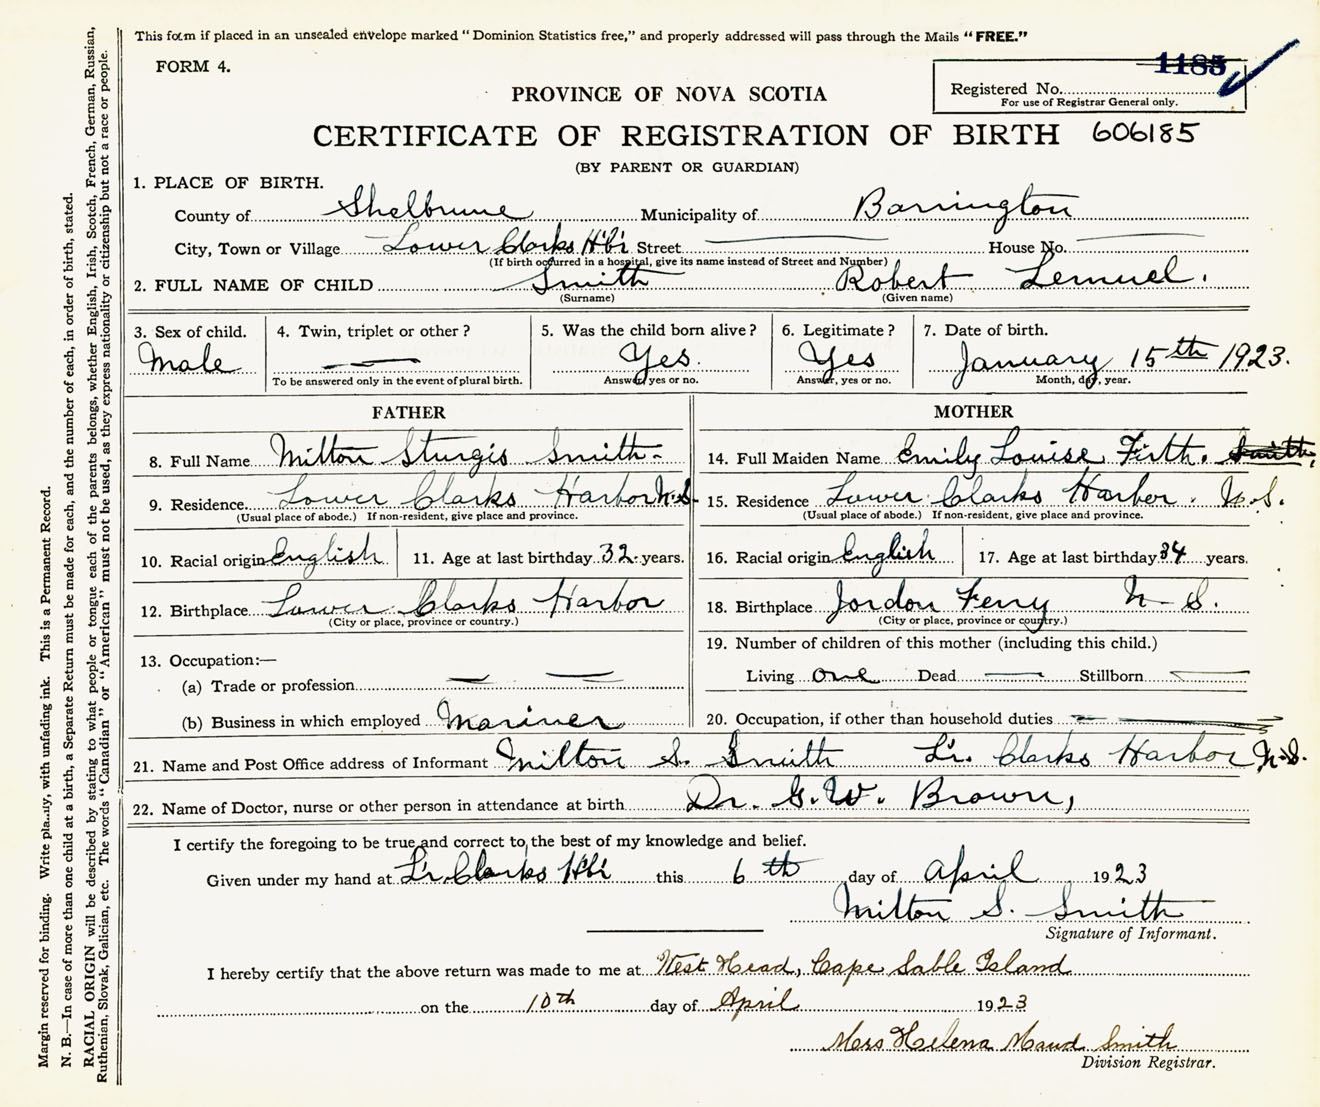 This form if placed in an unsealed envelope marked "Dominion Statistics free," and properly addressed will pass through the Mails "FREE."
FORM 4.
1185
Registered No.
For use of Registrar General only.
PROVINCE OF NOVA SCOTIA
CERTIFICATE OF REGISTRATION OF BIRTH 606185
(BY PARENT OR GUARDIAN)
1. PLACE OF BIRTH.
County of Shelburne Municipality of Barrington
City, Town or Village Lower Clarks Hbr Street House No.
(If birth occurred in a hospital, give its name instead of Street and Number)
2. FULL NAME OF CHILD Smith Robert Lemuel.
(Surname) (Given name)
3. Sex of child. 4. Twin, triplet or other? 5. Was the child born alive? 6. Legitimate? 7. Date of birth.
Male — Yes. Yes January 15th 1923.
To be answered only in the event of plural birth. Answer, yes or no. Answer, yes or no. Month, day, year.
FATHER
8. Full Name Milton Sturgis Smith-
9. Residence. Lower Clarks Harbor N.S.
(Usual place of abode.) If non-resident, give place and province.
10. Racial origin English 11. Age at last birthday 32 years.
12. Birthplace Lower Clarks Harbor
(City or place, province or country.)
13. Occupation:—
(a) Trade or profession
(b) Business in which employed Mariner
MOTHER
14. Full Maiden Name Emily Louise Firth. Smith
15. Residence Lower Clarks Harbor. N.S.
(Usual place of abode.) If non-resident, give place and province.
16. Racial origin English 17. Age at last birthday 34 years.
18. Birthplace Jordon Ferry N-S.
(City or place, province or country.)
19. Number of children of this mother (including this child.)
Living One Dead — Stillborn
20. Occupation, if other than household duties
21. Name and Post Office address of Informant Milton S. Smith Lr. Clarks Harbor N.S.
22. Name of Doctor, nurse or other person in attendance at birth Dr. G.W. Brown,
I certify the foregoing to be true and correct to the best of my knowledge and belief.
Given under my hand at Lr. Clarks Hbr this 6th day of April 1923
Milton S. Smith
Signature of Informant.
I hereby certify that the above return was made to me at West Head, Cape Sable Island
on the 10th day of April 1923
Mrs Helena Maud Smith
Division Registrar.
Margin reserved for binding. Write plainly, with unfading ink. This is a Permanent Record.
N. B.—In case of more than one child at a birth, a Separate Return must be made for each, and the number of each, in order of birth, stated.
RACIAL ORIGIN will be described by stating to what people or tongue each of the parents belongs, whether English, Irish, Scotch, French, German, Russian,
Ruthenian, Slovak, Galician, etc. The words "Canadian" or "American" must not be used, as they express nationality or citizenship but not a race or people.